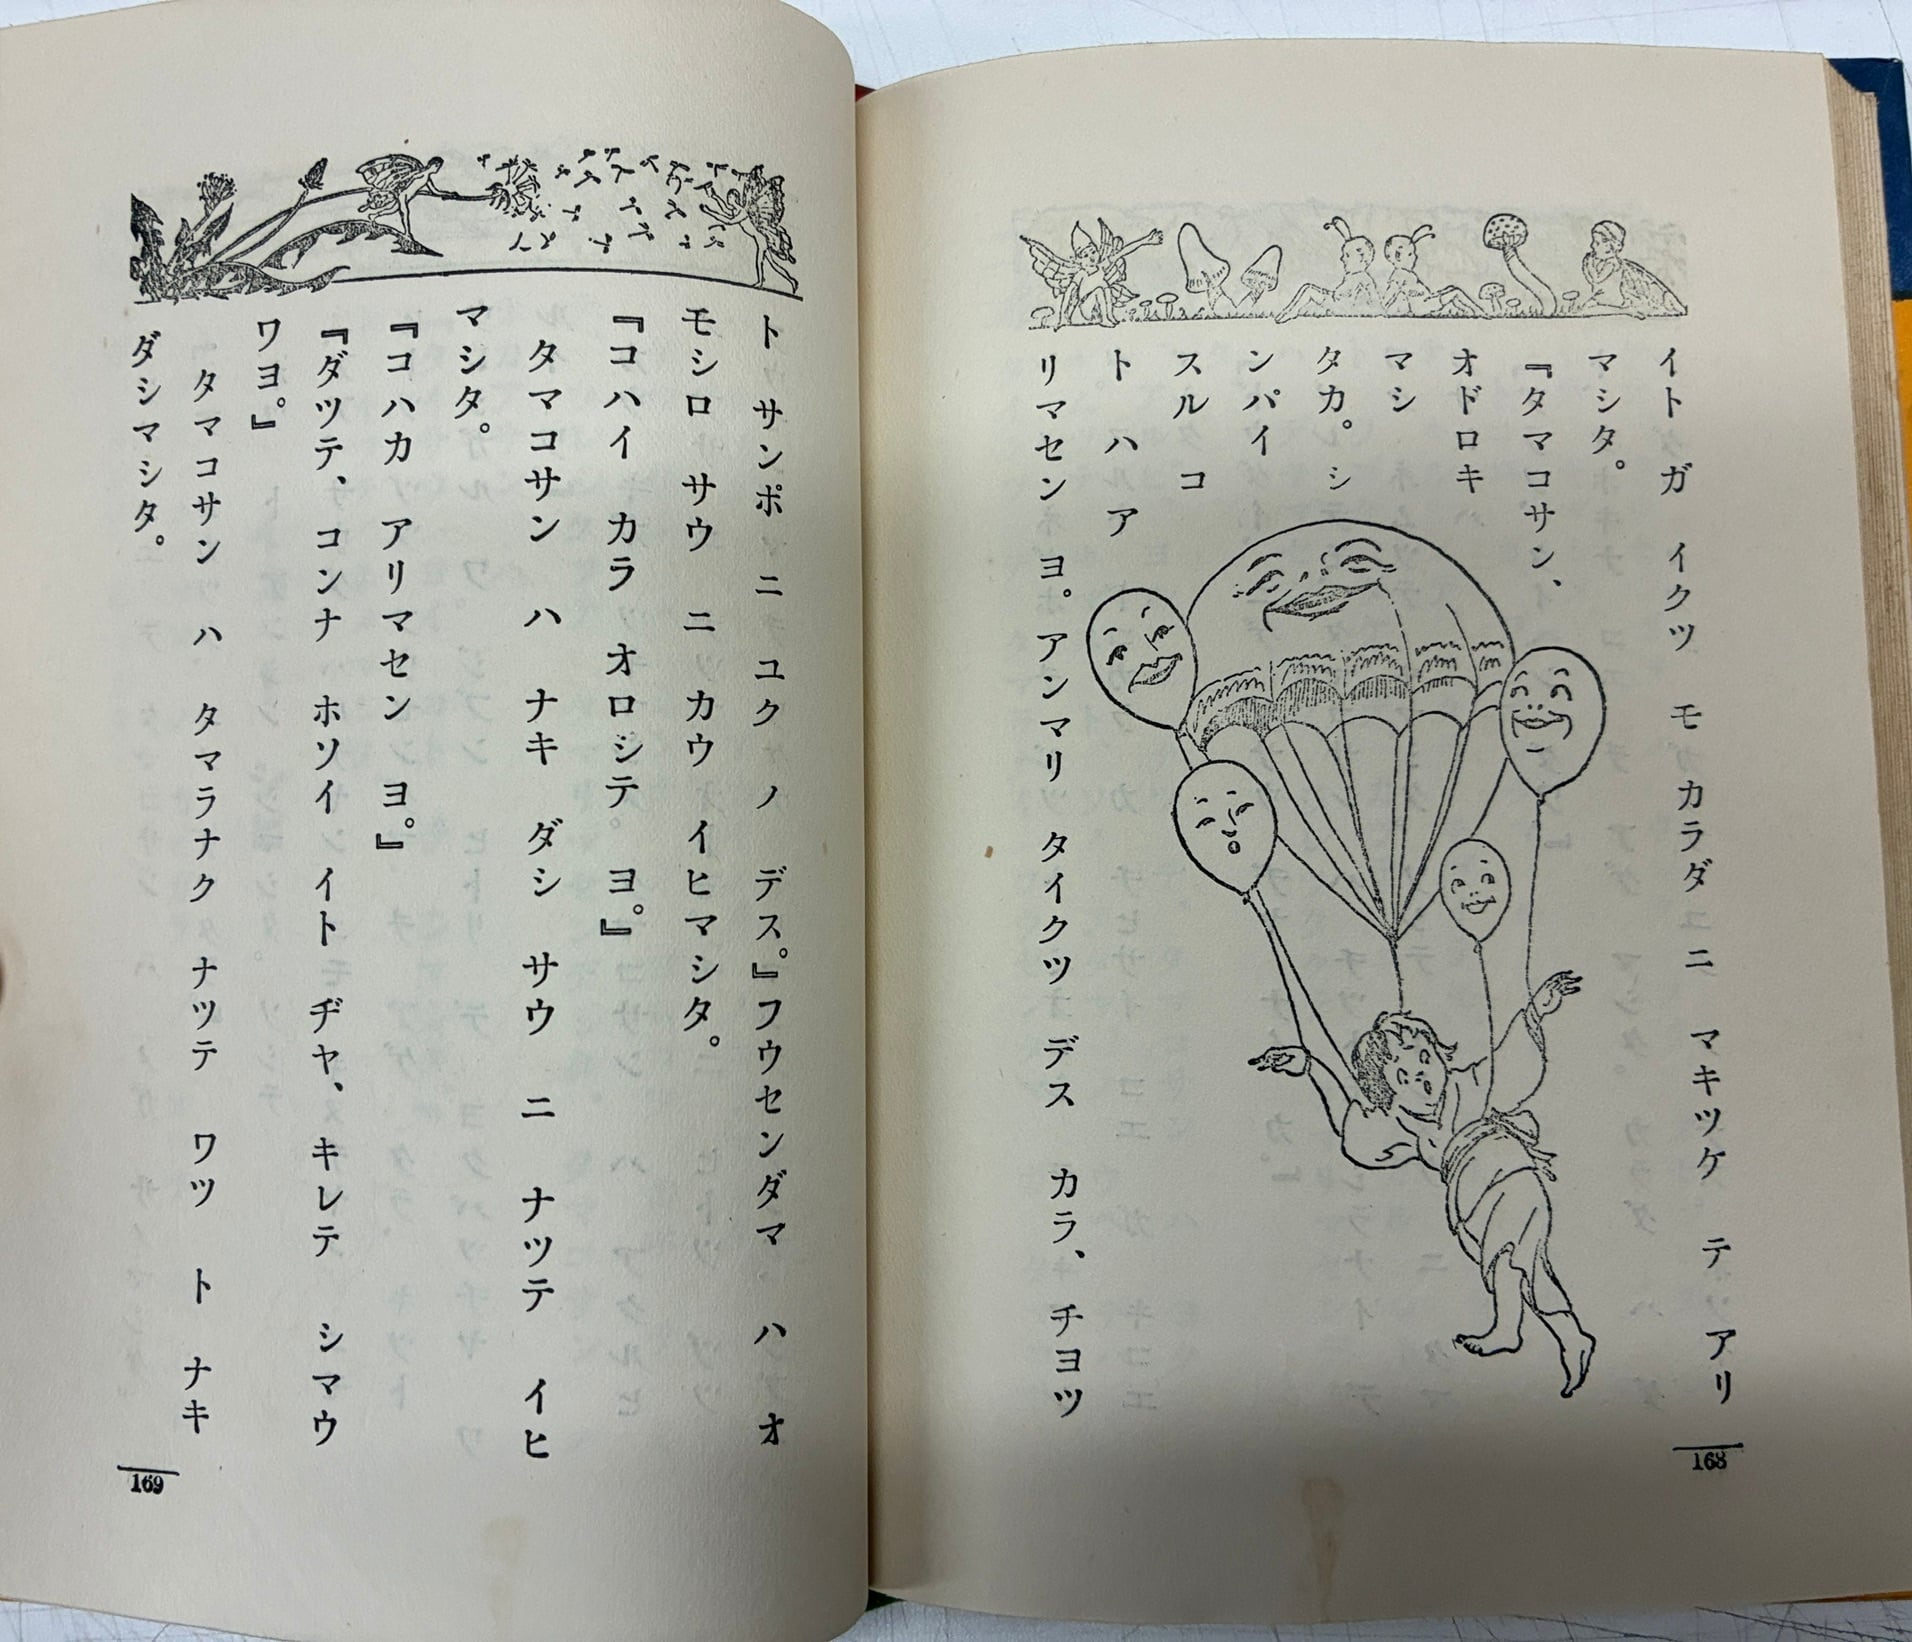 イト ガ イクツ モ カラダ ニ マキツケ テ アリ
マシタ。
『タマコサン、
オドロキ
マシ
タカ。シ
ンパイ
スル コ
ト ハ ア
リマセン ヨ。アンマリ タイクツ デス カラ、チヨツ
168
ト サンポ ニ ユク ノ デス。』フウセンダマ ハ オ
モシロ サウ ニ カウ イヒマシタ。
『コハイ カラ オロシテ ヨ。』
タマコサン ハ ナキ ダシ サウ ニ ナツテ イヒ
マシタ。
『コハカ アリマセン ヨ。』
『ダツテ、コンナ ホソイ イト ヂヤ、キレテ シマウ
ワヨ。』
タマコサン ハ タマラナク ナツテ ワツ ト ナキ
ダシマシタ。
169